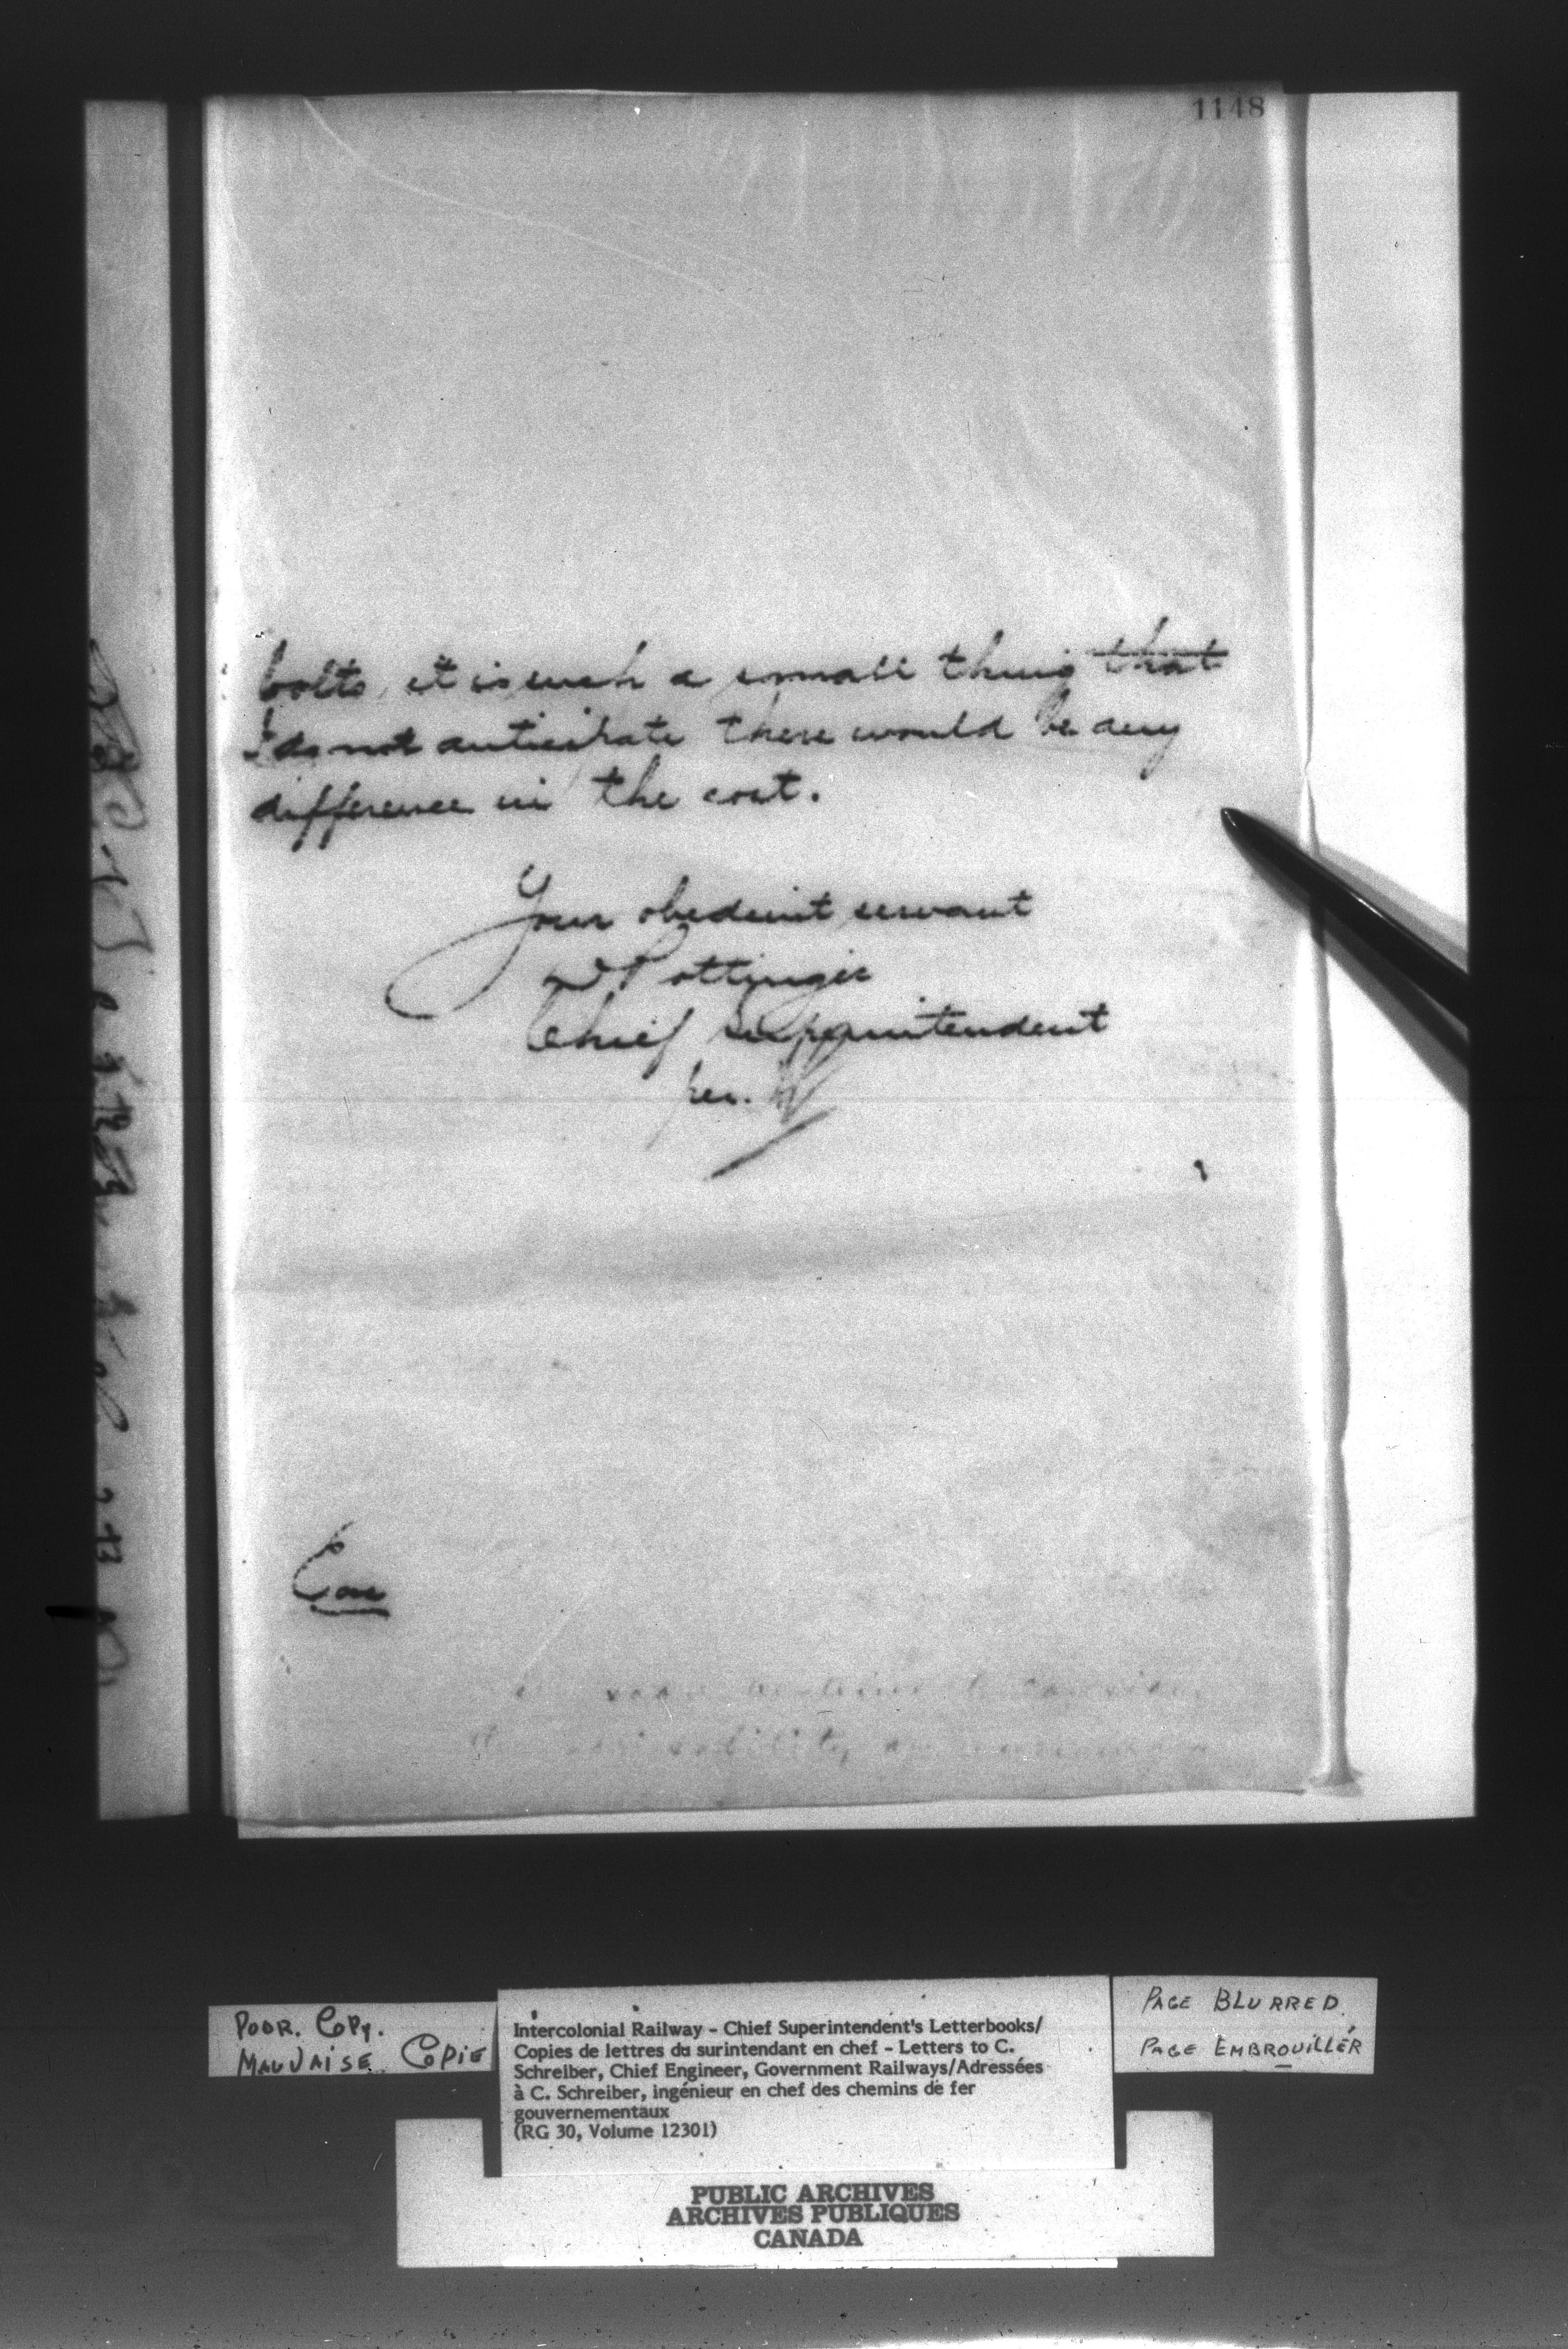 1148
bolts, it is such a small thing that
I do not anticipate there would be any
difference in the cost.
Your obedient servant
D Pottinger
Chief Superintendent
per.
POOR. COPY.
MAUVAISE COPIE
Intercolonial Railway - Chief Superintendent's Letterbooks/
Copies de lettres du surintendant en chef - Letters to C.
Schreiber, Chief Engineer, Government Railways/Adressées
à C. Schreiber, ingénieur en chef des chemins de fer
gouvernementaux
(RG 30, Volume 12301)
PAGE BLURRED.
PAGE EMBROUILLÉR
PUBLIC ARCHIVES
ARCHIVES PUBLIQUES
CANADA